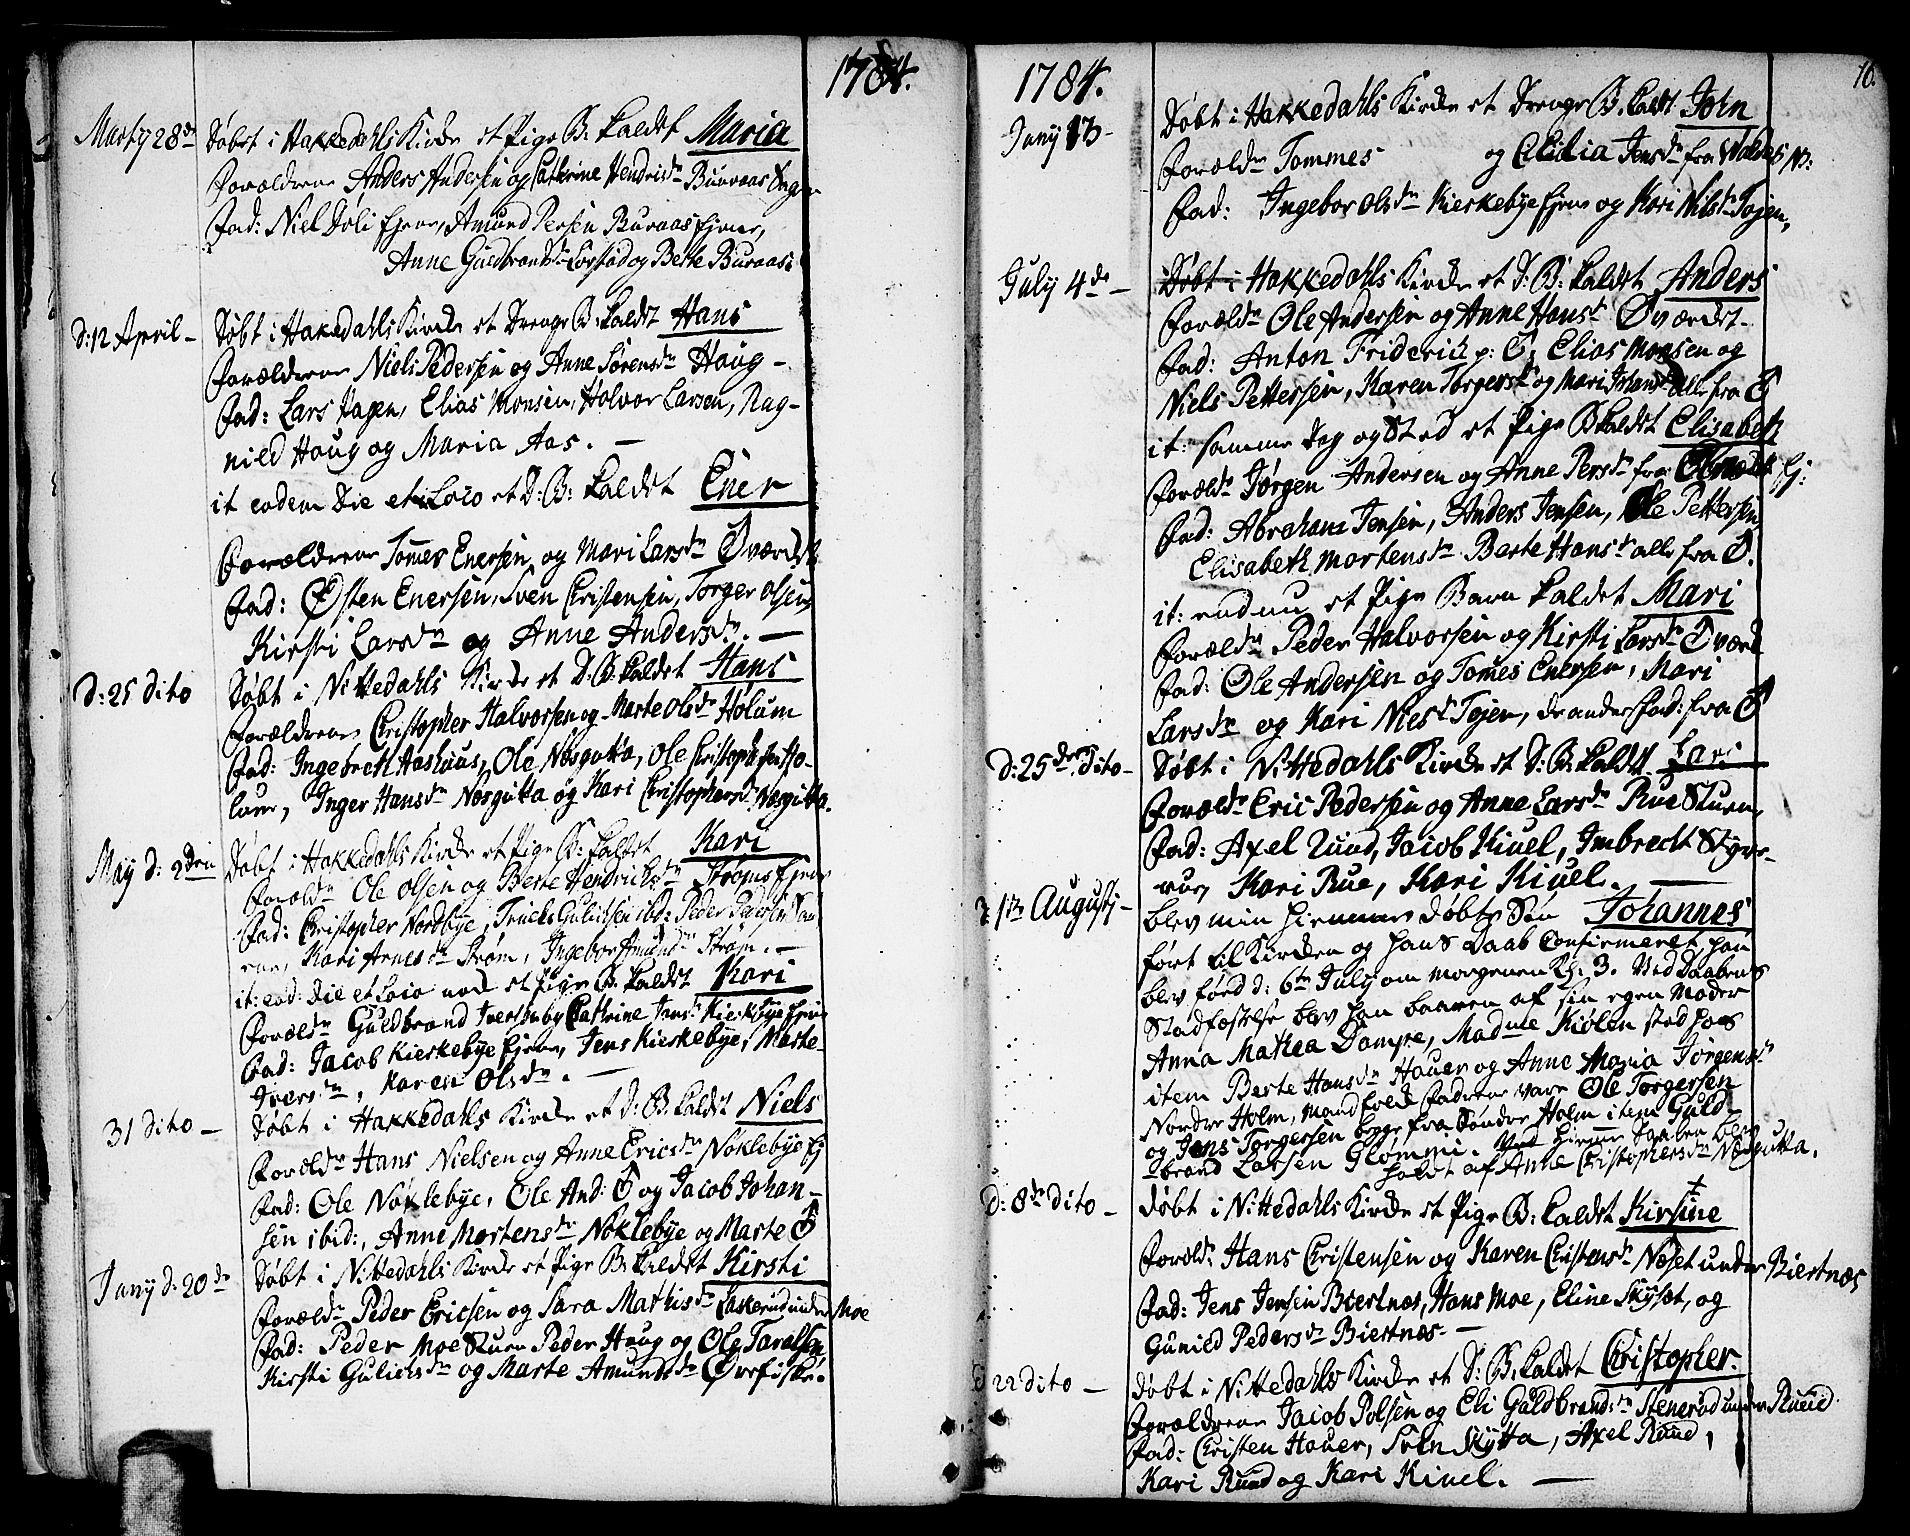 1784.
Marty 28de Døbt i Hakkedahls Kirche et Pige B. kaldet Maria
Forældrene Anders Andersen og Cathrine Hendrisdr Buraas
Fad: Niel Døli Ejere, Amund Persen Buraas Ejere,
Anne Guldbrandsdr og Berte Buraas:
d: 12 April – Døbt i Hakedahls Kirche et Drenge B. kaldet Hans
Forældrene Niels Pedersen og Anne Sørensdr Haug –
Fad: Lars Hagen, Elias Monsen, Halvor Larsen, Rag-
nild Haug og Maria Aas. –
it eodem Die et Loco et D: B: kaldet Ener
Forældrene Tomes Enersen og Mari Larsdr Øværket
Fad: Østen Enersen, Sven Christensen, Torger Olsen,
Kirsti Larsdr og Anne Andersdr. –
D: 25 dito Døbt i Nittedahls Kirche et D. B. kaldet Hans
Forældrene Christopher Halvorsen og Marte Olsdr Holum
Fad: Ingebreth Aashuus, Ole Næsgutta, Ole Christophersen Ho-
lum, Inger Hansdr Næsgutta og Kari Christophersdr Næsgutta.
May d: 2den Døbt i Hakkedahls Kirche et Pige B: kaldet Kari
Forældr Ole Olsen og Berte Hendrichsdr Strøms Ejere
Fad: Christopher Nordbye, Truels Gulichsen ibd: Peder Pedersen
Kari Arnesdr Strøm, Ingebor Amundsdr Strøm. –
it: eod: die et Loco nok et Pige B. kaldet Kari
Forældr Guldbrand Iversen Cathrine Jensdr Kierkebye Ejere
Fad: Jacob Kierkebye Ejere, Jens Kierkebye, Marte
Iversdr, Karen Olsdr. –
31 dito – Døbt i Hakkedahls Kirche et D: B. kaldet Niels
Forældr Hans Nielsen og Anne Ericsdr Nøklebye Ej
Fad: Ole Nøklebye, Ole And: ♂ og Jacob Johan-
sen ibid:, Anne Mortensdr Nøklebye og Marte ♂
Juny d: 20de Døbt i Nittedahls Kirche et Pige B. kaldet Kirsti
Forældr Peder Ericsen og Sara Mathisdr Laskerud under Moe
Fad: Peder Moe Stuen Peder Haug og Ole Taralsen
Kirsti Gulichsdr og Marte Amundsdr Ørfiske.
10.
1784.
Juny 13 – Døbt i Hakkedahls Kirche et Drenge B. kaldt John
Forældr Tommes og Cicilia Jensdr fra Waldres NB:
Fad: Ingebor Olsdr Kierkebye Ejere og Kari Nilsdr Tøjen,
July 4de – Døbt i Hakkedahls Kirche et D: B: kaldet Anders
Forældr Ole Andersen og Anne Hansdr Øværket –
Fad: Anton Friderich p: t, Elias Monsen og
Niels Pettersen, Karen Torgersdr og Mari Johansdr alle fra ♂
it: samme Dag og Sted et Pige B kaldet Elisabeth
Forældr Jørgen Andersen og Anne Persdr fra Ej:
Fad: Abraham Jensen, Anders Jensen, Ole Pettersen
Elisabeth Mortensdr Berte Hansdr alle fra ♂.
it: endnu et Pige Barn kaldet Mari
Forældr Peder Halvorsen og Kirsti Larsdr Øværk
Fad: Ole Andersen og Tomes Enersen, Mari
Larsdr og Kari Niesdr Tøjen, de andre Fad: fra ♂
d: 25de dito – Døbt i Nittedahls Kirche et D: B: kaldet Lars
Forældr Eric Pedersen og Anne Larsdr Rue Stuen,
Fad: Axel Ruud, Jacob Kiuel, Imbrecht Styve-
rud, Kari Rue, Kari Kiuel. –
1ste Augusti – blev min hiemmedøbte Søn Johannes
ført til Kirchen og hans Daab Confirmeret, han
blev fød d: 6te July om morgenen Kl: 3. Ved Daabens
Stadfæstelse blev han baaren af sin egen Moder
Anna Mathea Dompe, Madme Kiølen stod hos
item Berte Hansdr Hauer og Anne Maria Jørgensdr
Nordre Holm, Mandfolk Fadderne vare Ole Torgersen
og Jens Torgersen begge fra Søndre Holm item Guld-
brand Larsen Glømmi. Ved hiemme Daaben blev
holdt af Anne Christophersdr Næsgutta.
D: 8de dito – Døbt i Nittedahls Kirche et Pige B: kaldet Kirsine
Forældr: Hans Christensen og Karen Christensdr Næset under Biertnæs
Fad: Jens Jensen Biertnæs, Hans Moe, Eline Skyset, og
Gunild Pedersdr Biertnæs. –
22 dito – Døbt i Nittedahls Kirche et D: B: kaldet Christopher.
Forældrene Jacob Polsen og Eli Guldbrandsdr Stenerød under Ruud
Fad: Christen Hauer, Sven Skytta, Axel Ruud,
Kari Ruud og Kari Kiuel. –